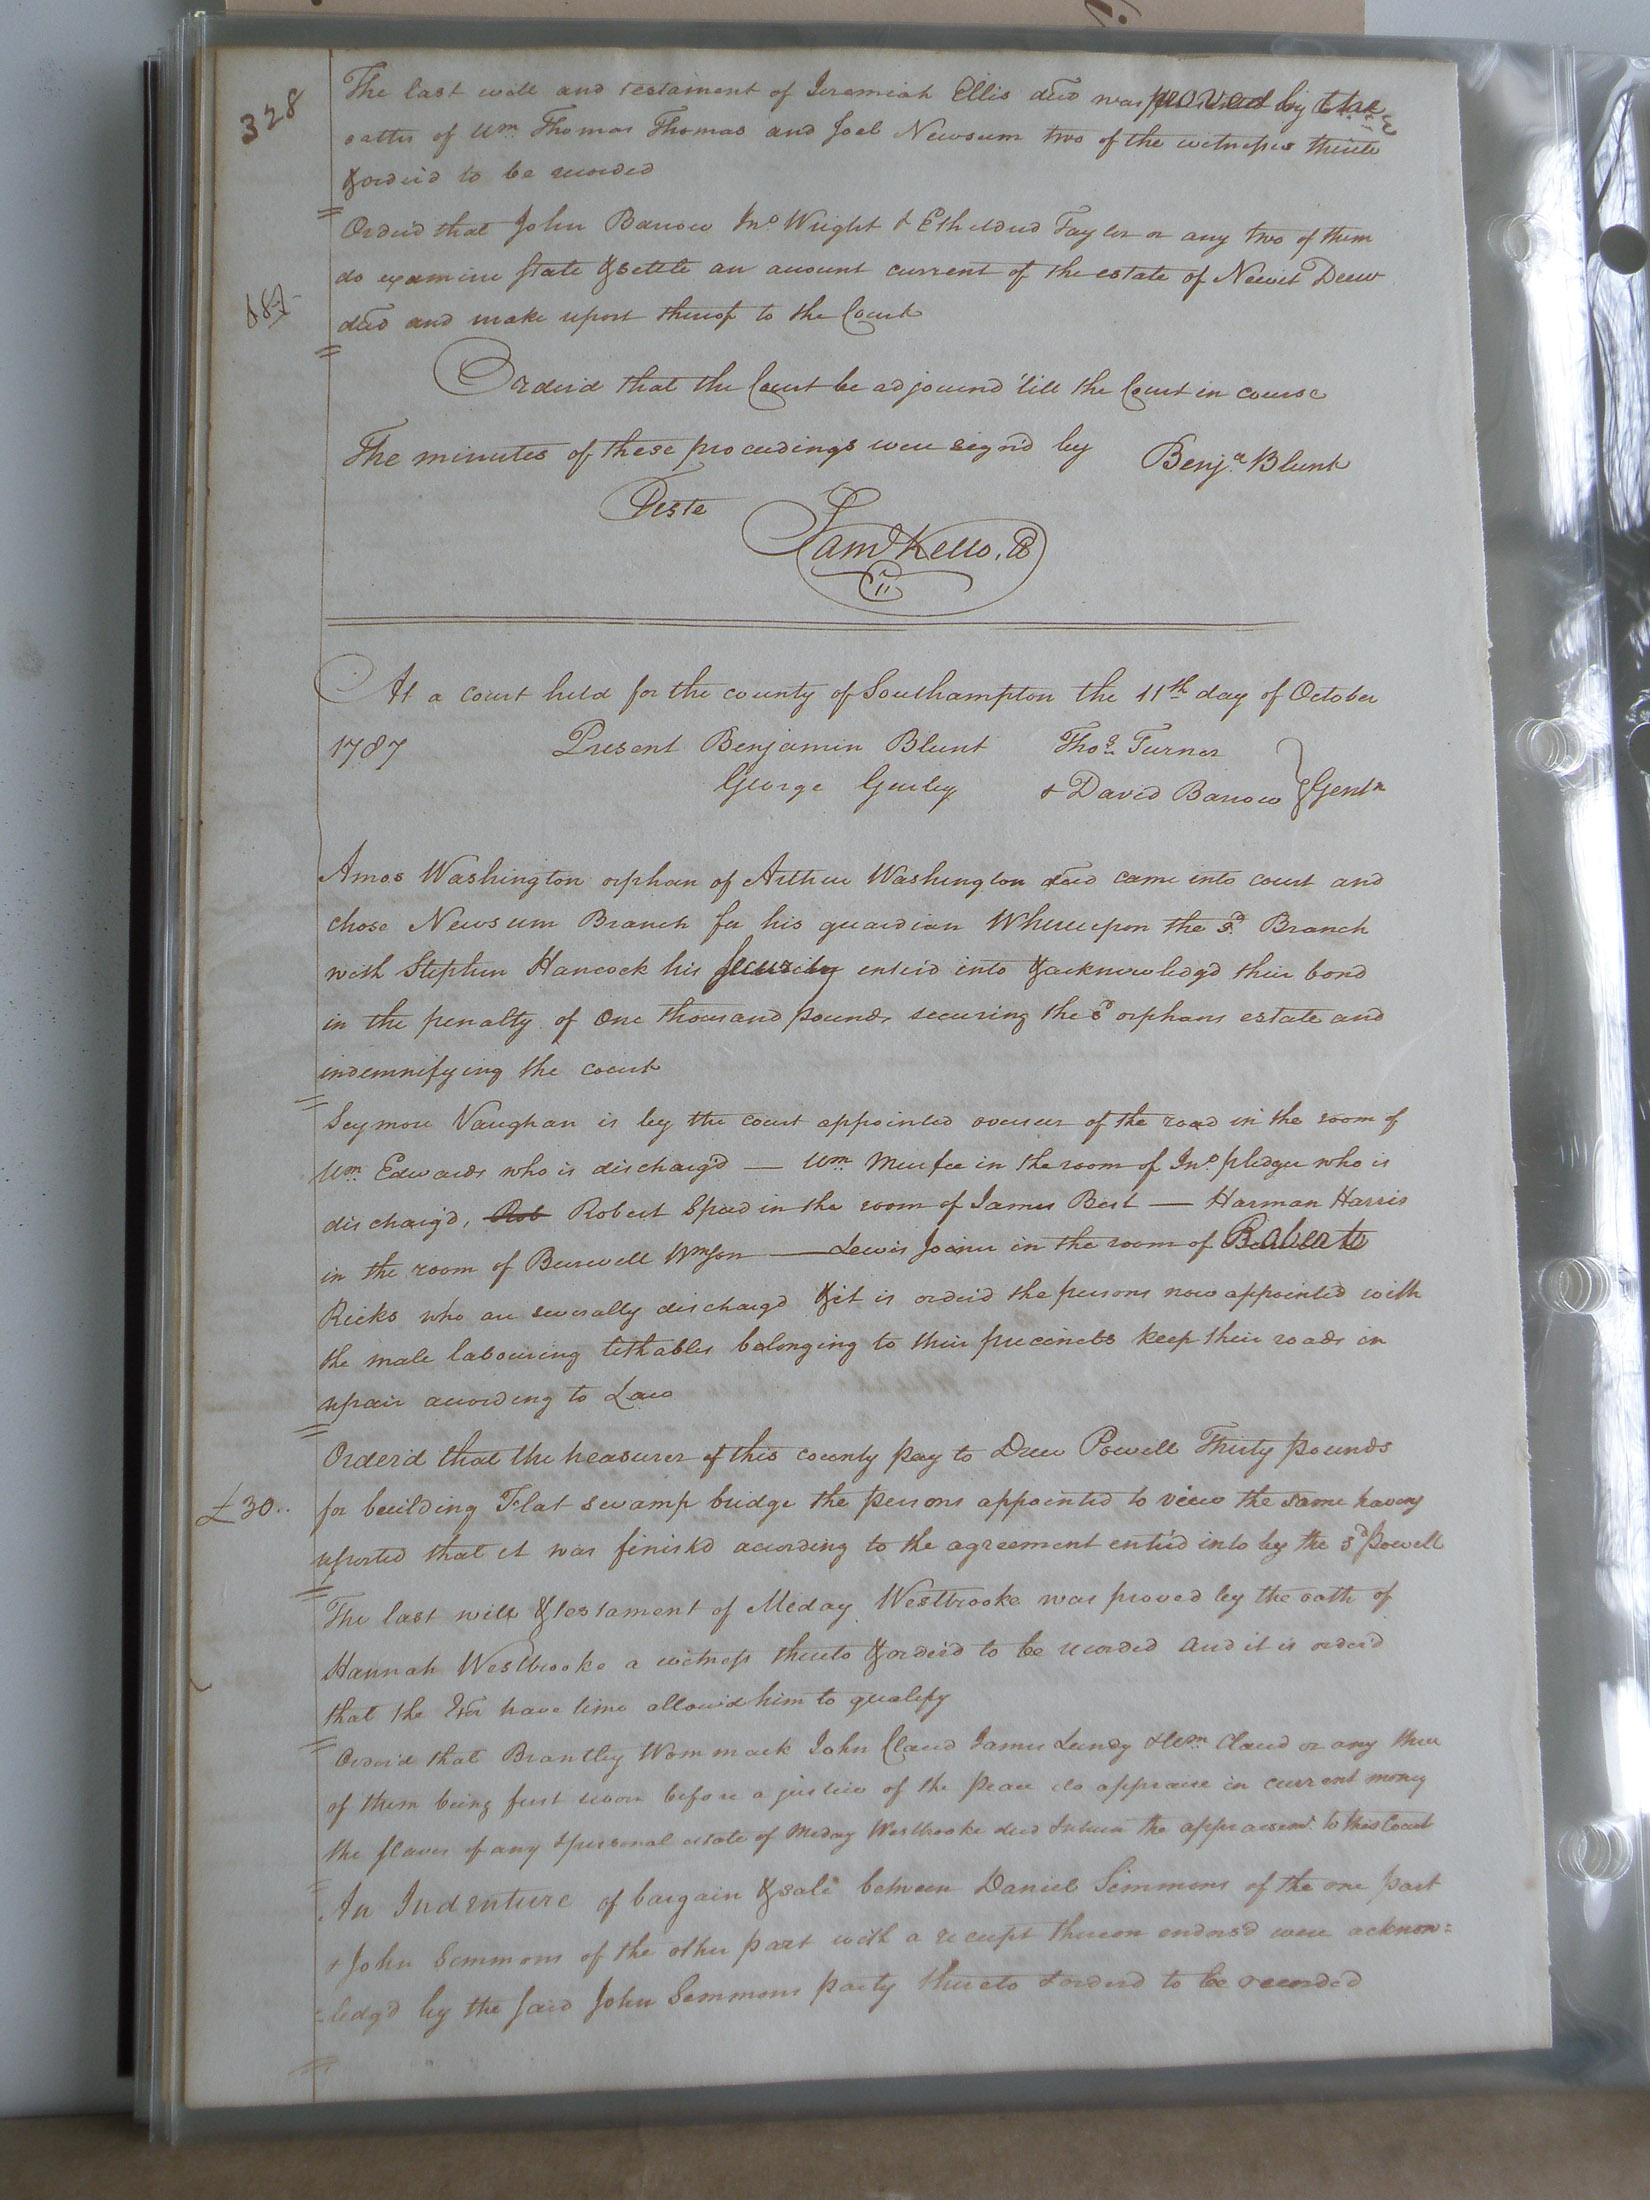 328
The last will and testament of Jeremiah Ellis decd was proved by the
oaths of Wm. Thomas Thomas and Joel Newsum two of the witnesses thereto
& orderd to be recorded
Orderd that John Barrow Jno. Wright & Etheldred Taylor or any two of them
do examine state & settle an account current of the estate of Newit Drew
187
decd and make report thereof to the Court
Orderd that the Court be adjournd 'till the Court in course
The minutes of these proceedings were sign'd by Benja. Blunt
Teste
Saml Kello. C
At a court held for the county of Southampton the 11th day of October
1787 Present Benjamin Blunt Thos. Turner
George Gurley & David Barrow } Gentn
Amos Washington orphan of Arthur Washington decd came into court and
chose Newsum Branch for his guardian Whereupon the sd. Branch
with Stephen Hancock his security enter'd into & acknowledg'd their bond
in the penalty of One thousand pounds securing the sd orphans estate and
indemnifying the court
Seymore Vaughan is by the court appointed overseer of the road in the room of
Wm. Edwards who is discharg'd — Wm. Murfee in the room of Jno. pledger who is
discharg'd, Rob Robert Speed in the room of James Best — Harman Harris
in the room of Burwell Wmson — Lewis Joiner in the room of Robert
Ricks who are severally discharg'd & it is order'd the persons now appointed with
the male labouring tithables belonging to their precincts keep their roads in
repair according to Law
Order'd that the treasurer of this county pay to Drew Powell Thirty pounds
£30.. for building Flat swamp bridge the persons appointed to view the same having
reported that it was finish'd according to the agreement enter'd into by the sd Powell
The last will & testament of Meday Westbrooke was proved by the oath of
Hannah Westbrooke a witness thereto & order'd to be recorded And it is order'd
that the Exr have time allow'd him to qualify
Order'd that Brantley Wommack John Claud James Lundy & Wm. Claud or any three
of them being first sworn before a justice of the peace do appraise in current money
the slaves if any & personal estate of Meday Westbrooke decd & return the appraisemt. to this Court
An Indenture of bargain & sale between Daniel Simmons of the one part
& John Simmons of the other part with a receipt thereon endors'd were acknow=
=ledg'd by the said John Simmons party thereto & orderd to be recorded